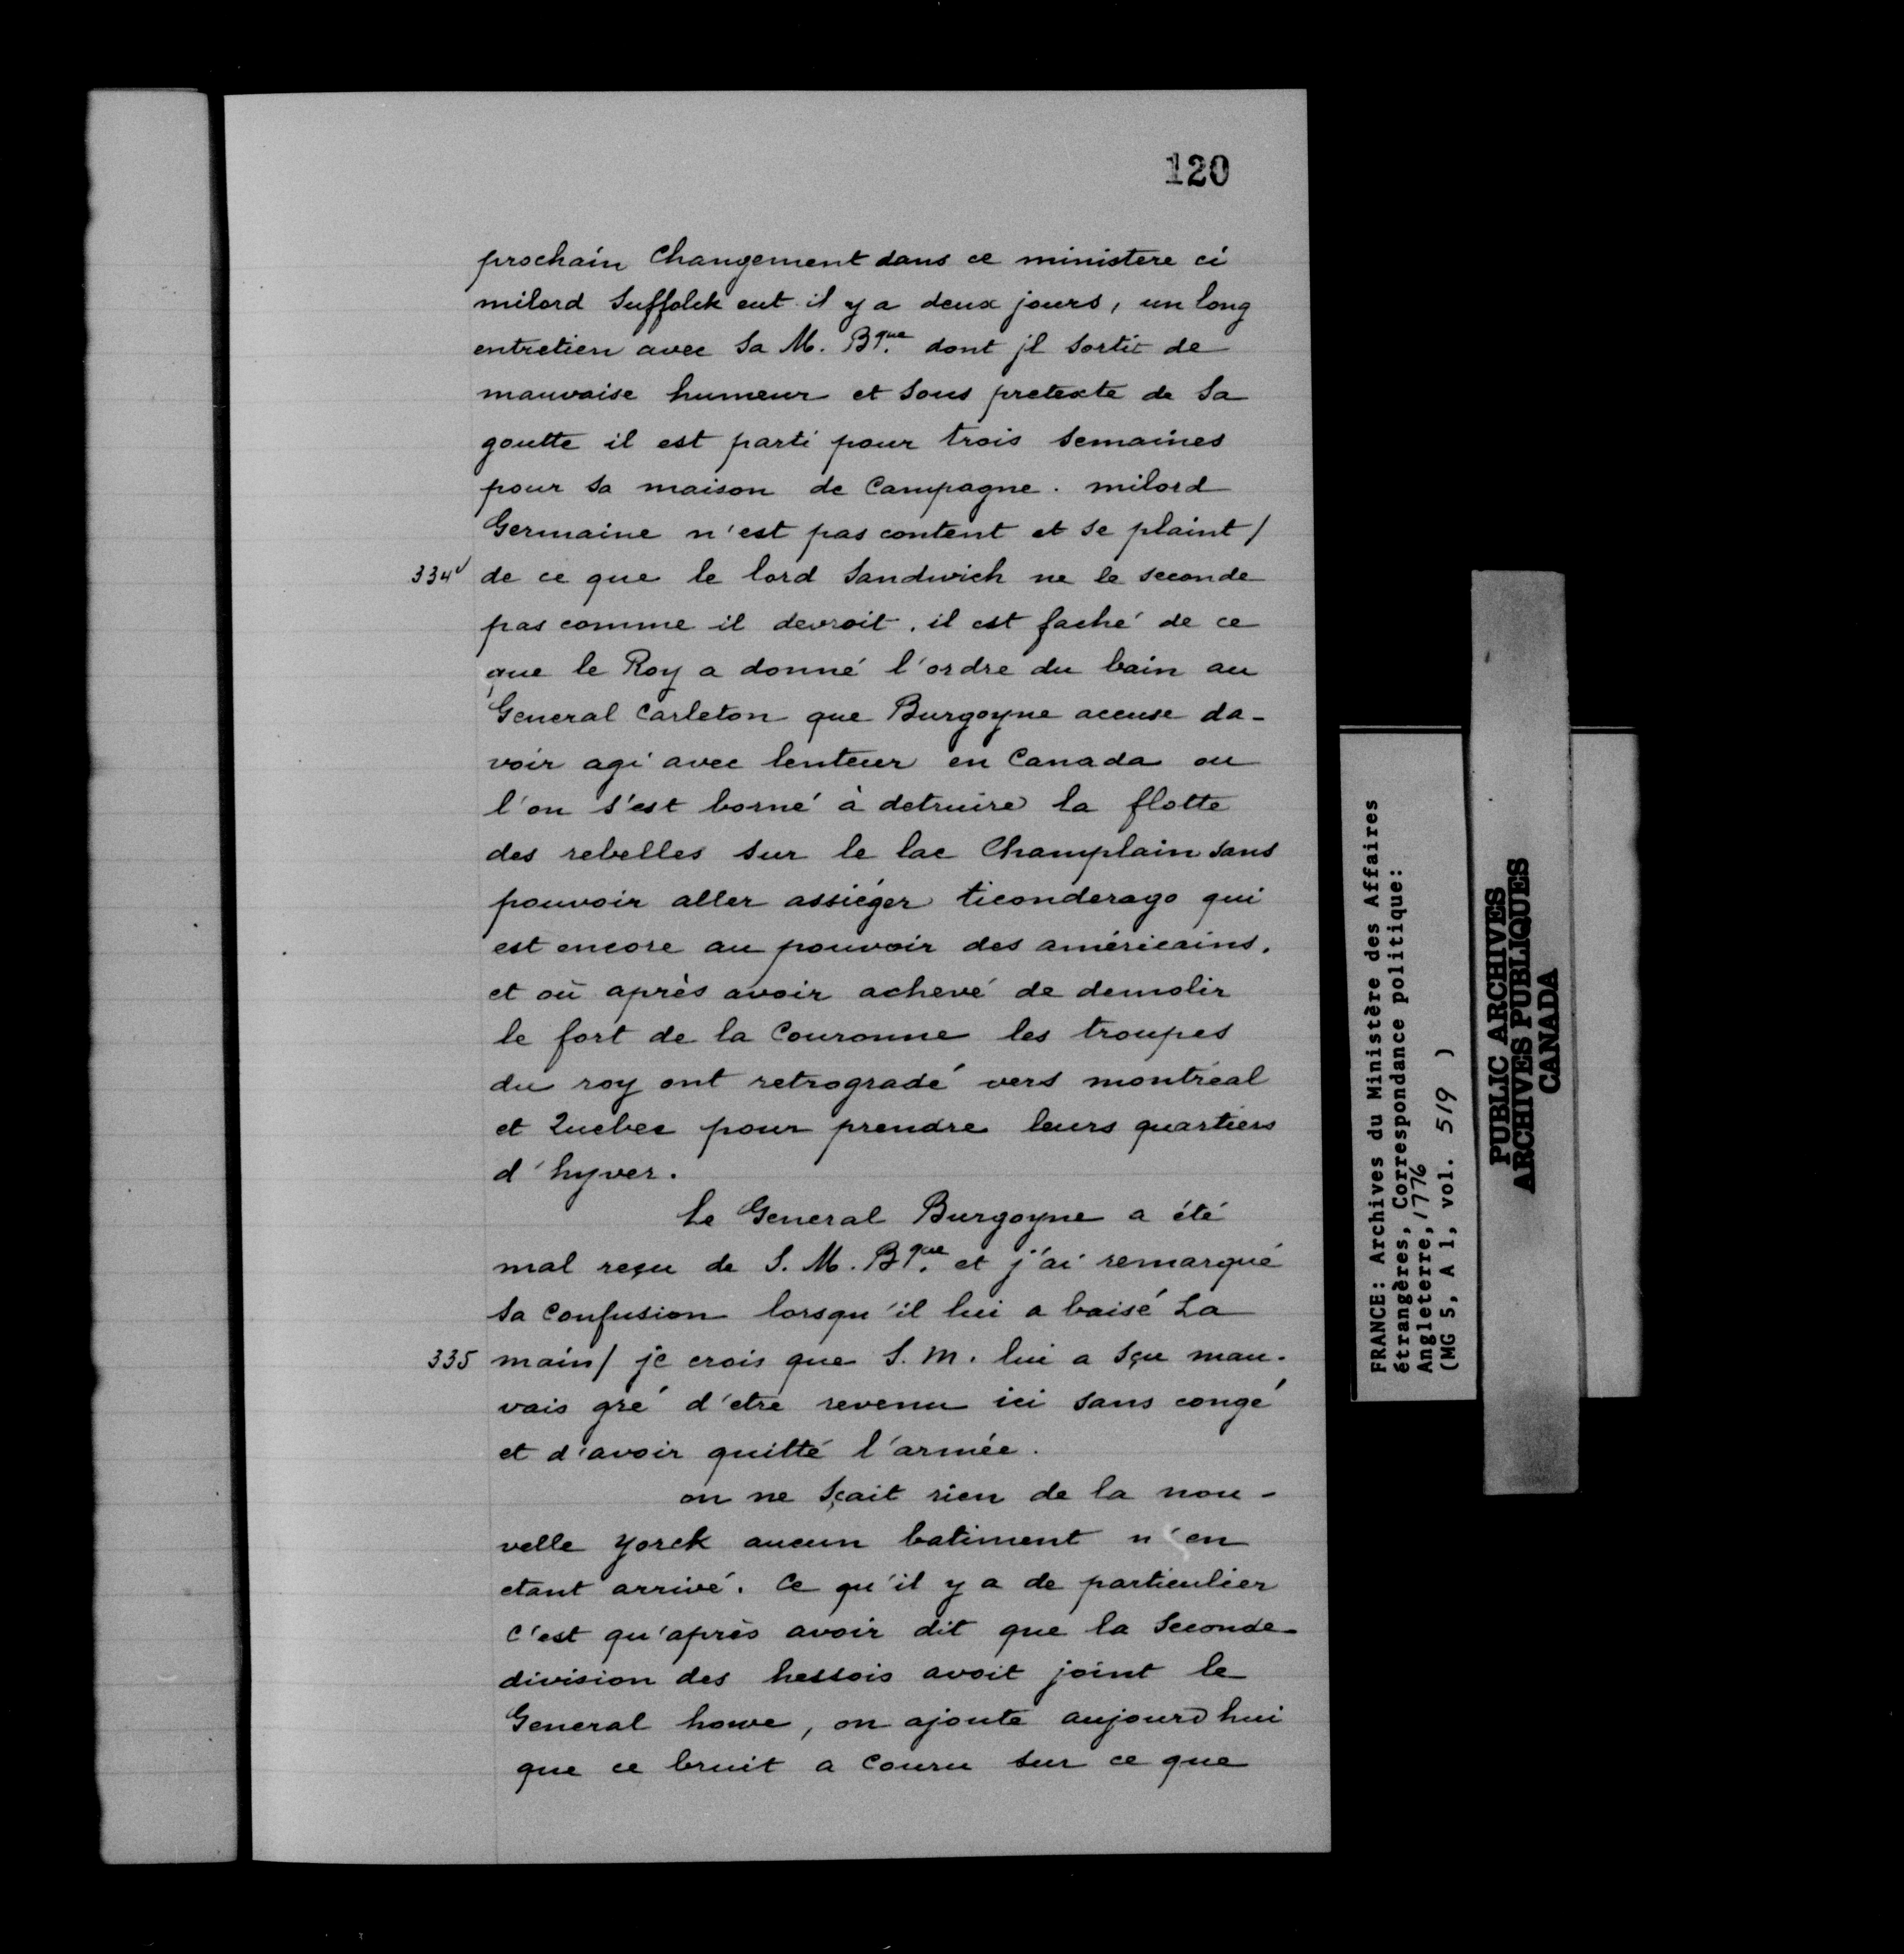 120
prochain Changement dans ce ministere ci
milord Suffolck eut il y a deux jours, un long
entretien avec Sa M. Bque. dont jl Sortit de
mauvaise humeur et Sous pretexte de Sa
goutte il est parti pour trois Semaines
pour Sa maison de Campagne. milord
Germaine n'est pas content et Se plaint /
334v de ce que le lord Sandwich ne le seconde
pas comme il devroit. il est faché de ce
que le Roy a donné l'ordre du bain au
General Carleton que Burgoyne accuse da-
voir agi avec lenteur en Canada ou
l'on s'est borné à detruire la flotte
des rebelles Sur le lac Champlain Sans
pouvoir aller assiéger ticonderago qui
est encore au pouvoir des américains,
et où après avoir achevé de demolir
le fort de la Couronne les troupes
du roy ont retrogradé vers montréal
et Quebec pour prendre leurs quartiers
d'hyver.
Le General Burgoyne a été
mal reçu de S. M. Bque. et j'ai remarqué
Sa Confusion lorsqu'il lui a baisé La
335 main / je crois que S. M. lui a Sçu mau-
vais gré d'etre revenu ici Sans congé
et d'avoir quitté l'armée.
on ne Sçait rien de la nou-
velle Yorck aucun batiment n'en
etant arrivé. Ce qu'il y a de particulier
C'est qu'après avoir dit que la Seconde
division des hessois avoit joint le
General howe, on ajoute aujourdhui
que ce bruit a Couru Sur ce que
FRANCE: Archives du Ministère des Affaires
étrangères, Correspondance politique:
Angleterre, 1776
(MG 5, A 1, vol. 519 )
PUBLIC ARCHIVES
ARCHIVES PUBLIQUES
CANADA